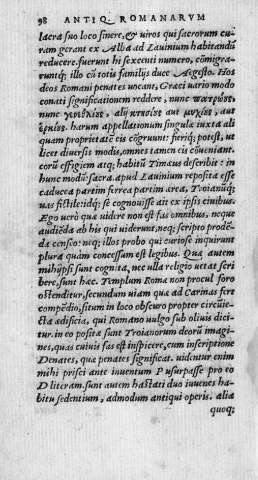 98 ANTIQ. ROMANARVM
sacra suo loco sinere, & uiros qui sacrorum cu
ram gerant ex Alba ad Lauinium habitandū
reducere. fuerunt hi sexcenti numero, cōmigra-
runtq; illo cū totis familijs duce Aegesto. Hos
deos Romani penates uocant, Græci uario modo
conati significationem reddere, nunc πατρῴους
nunc γενεθλίους, alij κτησίους aut μυχίους, aut
ἑρκίους. harum appellationum singulæ iuxta ali
quam proprietatē eis cōgruunt: fieriq; potest, ut
licet diuersis modis, omnes tamen eis cōueniant.
eorū effigiem atq; habitū Timæus describit in
hunc modū: sacra apud Lauinium reposita esse
caducea partim ferrea partim ærea, Troianūq;
uas fictile: idq; se cognouisse ait ex ipsis ciuibus.
Ego uerò quæ uidere non est fas omnibus, neque
audiēda ab his qui uiderunt, neq; scripto prodē-
da censeo: neq; illos probo qui curiose inquirunt
plura quàm concessum est legibus. Quæ autem
mihi ipsi sunt cognita, nec ulla religio uetat scri
bere, sunt hæc. Templum Romæ non procul foro
ostenditur, secundum uiam quæ ad Carinas fert
compēdio, situm in loco obscuro propter circūie-
cta ædificia, qui Romano uulgo sub oliuis dici-
tur. in eo positæ sunt Troianorum deorū imagi
nes, quas cuiuis fas est inspicere, cum inscriptione
Denates, quæ penates significat. uidentur enim
mihi prisci ante inuentum P usurpasse pro eo
D literam. sunt autem hastati duo iuuenes ha-
bitu sedentium, admodum antiqui operis. alia
quoq;